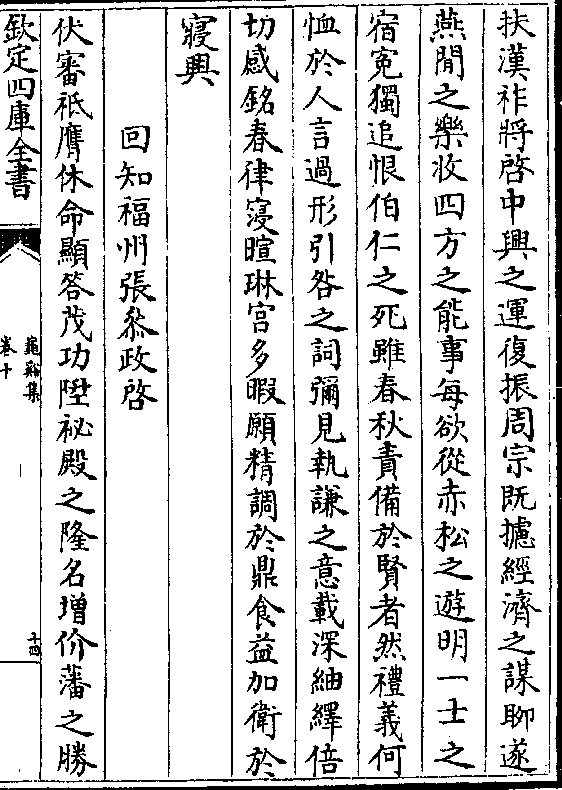 扶漢祚將啓中興之運復振周宗既攄經濟之謀聊遂
燕閒之樂收四方之能事每欲從赤松之遊明一士之
宿寃獨追恨伯仁之死雖春秋責備於賢者然禮義何
恤於人言過形引咎之詞彌見執謙之意載深紬繹倍
切感銘春律寖暄琳宫多暇願精調於鼎食益加衛於
寢興
回知福州張叅政啓
伏審祗膺休命顯答茂功陞祕殿之隆名增价藩之勝
欽定四庫全書
龜谿集
卷十
十四